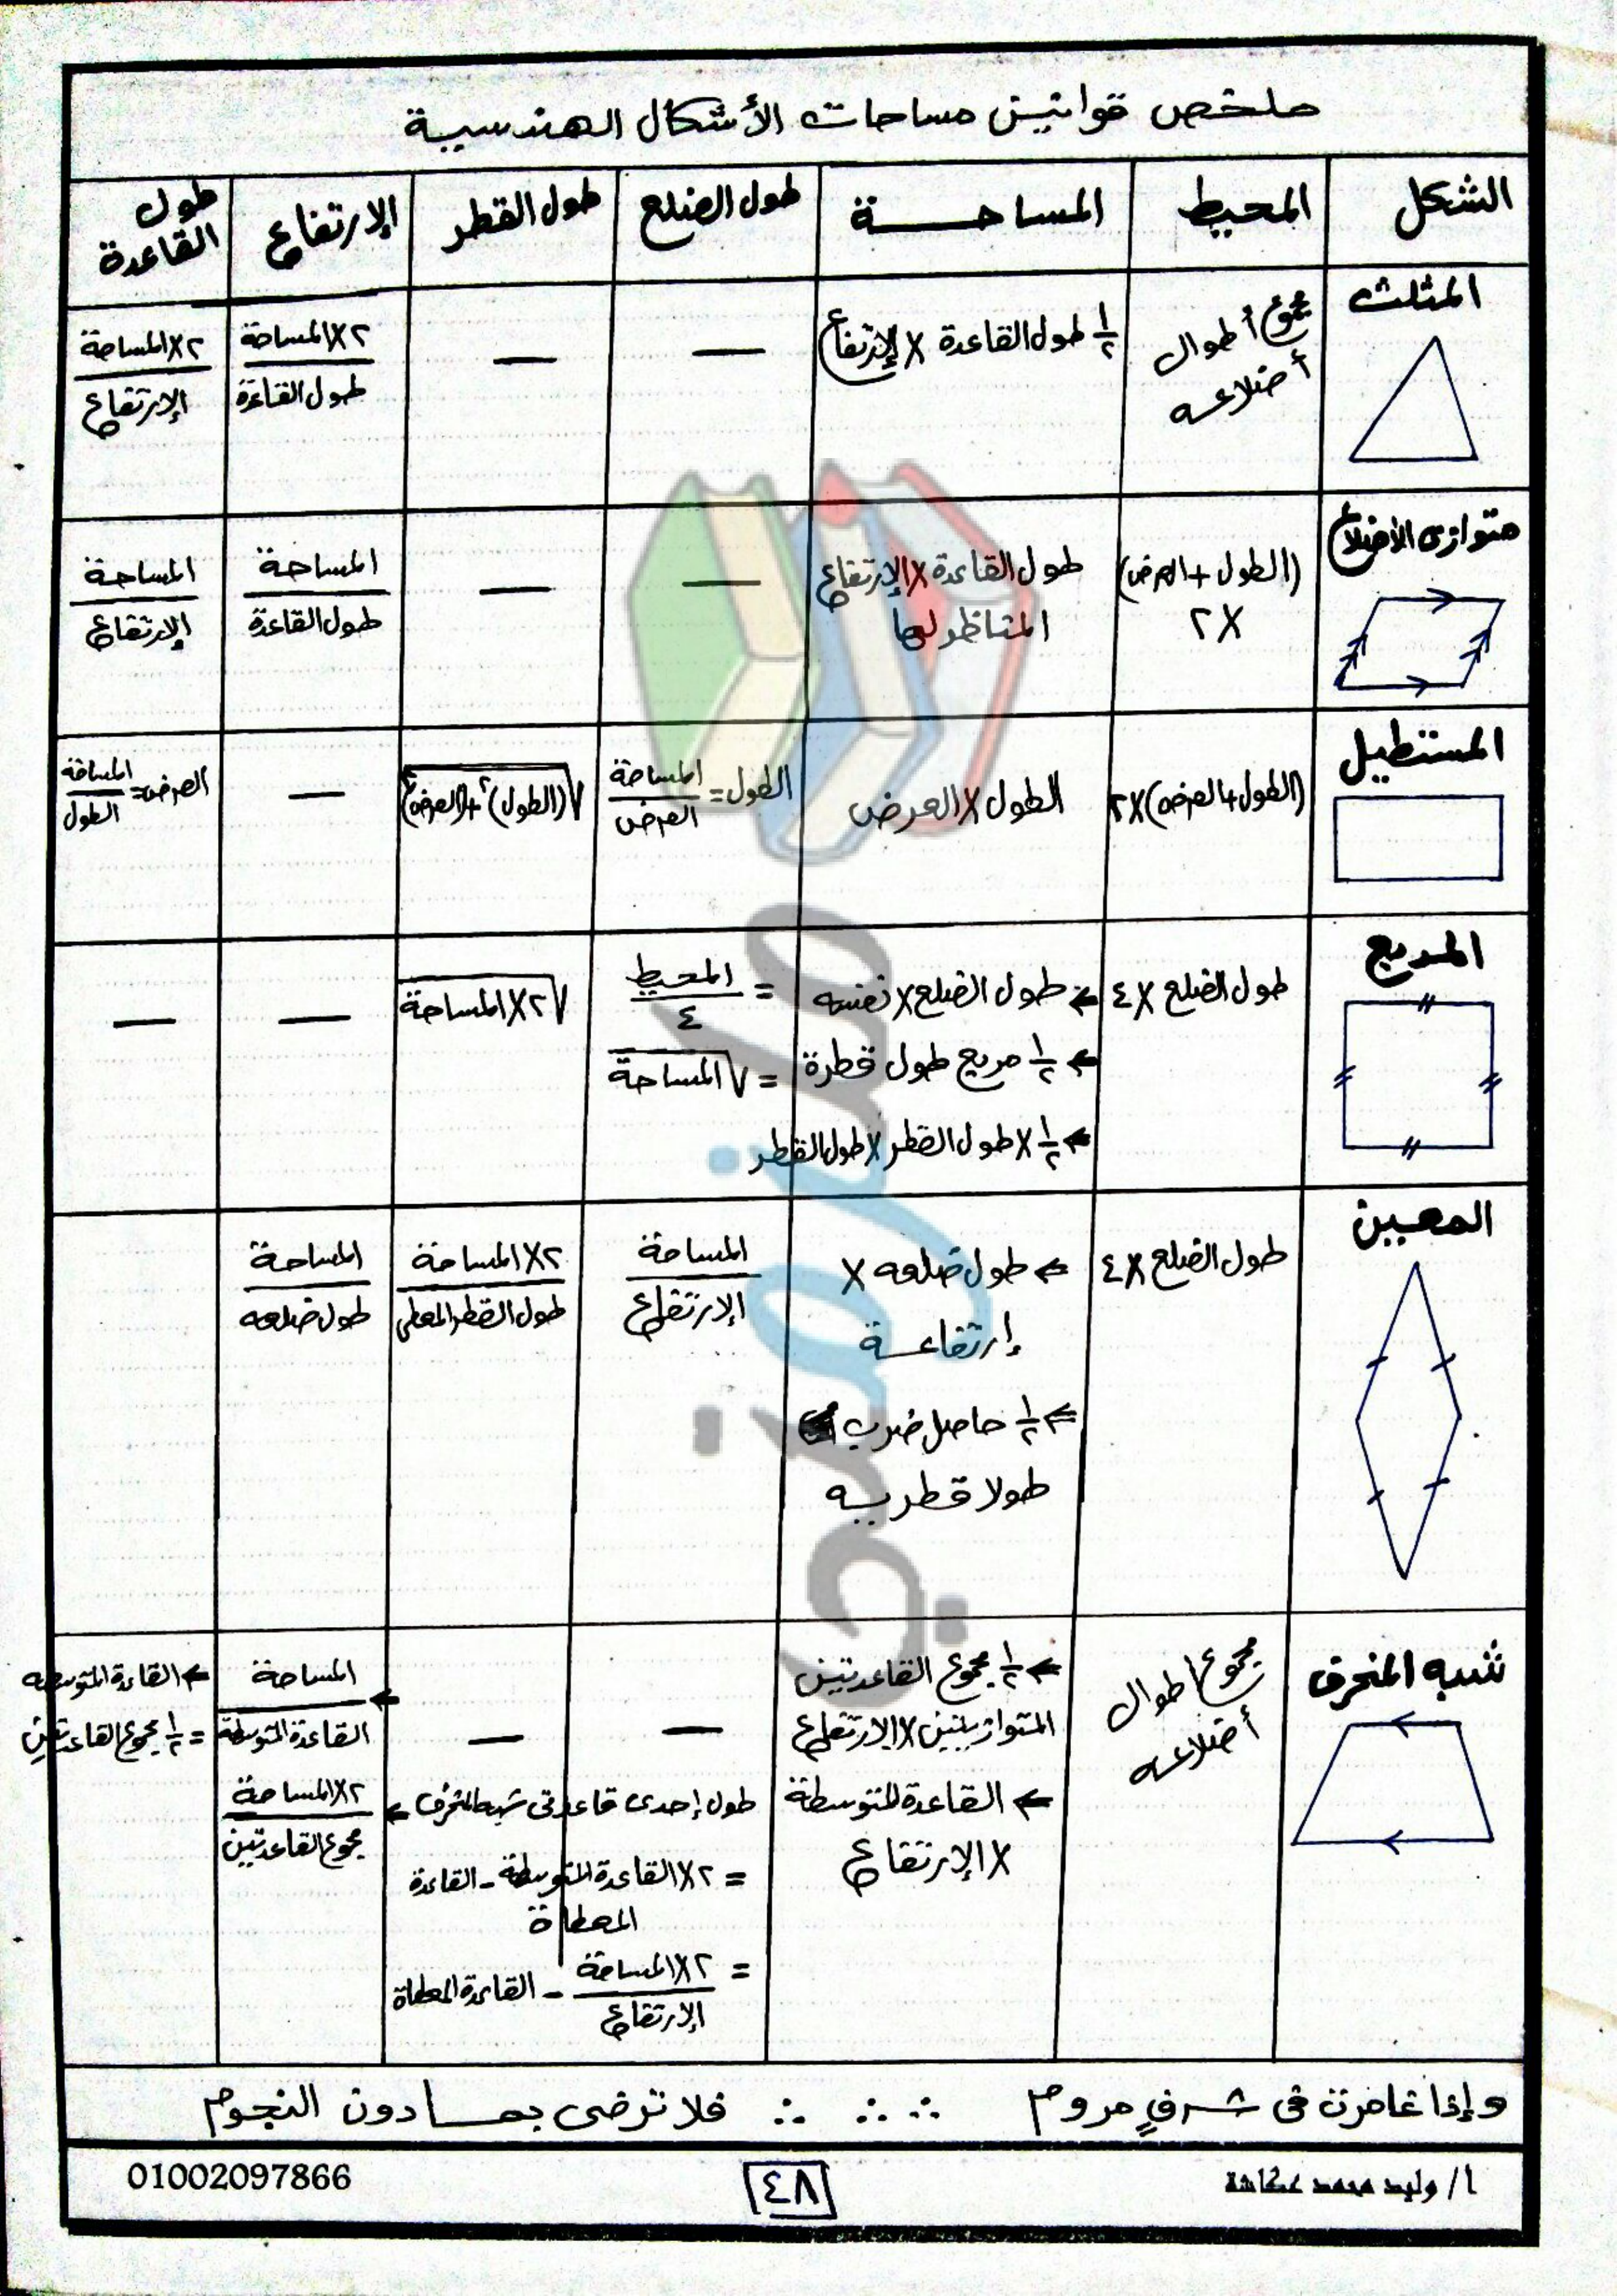 ملخص قوانين مساحات الأشكال الهندسية
الشكل
المحيط
المساحة
طول الضلع
طول القطر
الإرتفاع
طول القاعدة
المثلث
مجموع أطوال
أضلاعه
١/٢ طول القاعدة × الإرتفاع
—
—
٢×المساحة / طول القاعدة
٢×المساحة / الإرتفاع
متوازى الأضلاع
(الطول + العرض)
× ٢
طول القاعدة × الإرتفاع
المناظر لها
—
—
المساحة / طول القاعدة
المساحة / الإرتفاع
المستطيل
(الطول + العرض) × ٢
الطول × العرض
الطول = المساحة / العرض
√(الطول)² + (العرض)²
—
العرض = المساحة / الطول
المربع
طول الضلع × ٤
← طول الضلع × نفسه
← ١/٢ مربع طول قطرة
← ١/٢ × طول القطر × طول القطر
= المحيط / ٤
= √المساحة
√٢×المساحة
—
—
المعين
طول الضلع × ٤
← طول ضلعه ×
إرتفاعة
← ١/٢ حاصل ضرب
طولا قطريه
المساحة / الإرتفاع
٢×المساحة / طول القطر المعطى
المساحة / طول ضلعه
شبه المنحرف
مجموع أطوال
أضلاعه
← ١/٢ مجموع القاعدتين
المتوازيتين × الإرتفاع
← القاعدة المتوسطة
× الإرتفاع
—
—
طول إحدى قاعدتى شبه المنحرف
= ٢×القاعدة المتوسطة - القاعدة
المعطاة
= ٢×المساحة / الإرتفاع - القاعدة المعطاة
← المساحة / القاعدة المتوسطة
← ٢×المساحة / مجموع القاعدتين
← القاعدة المتوسطه
= ١/٢ مجموع القاعدتين
وإذا غامرت فى شرفٍ مروم ∴ ∴ ∴ فلا ترضى بما دون النجوم
أ/ وليد محمد عكاشة
٤٨
01002097866